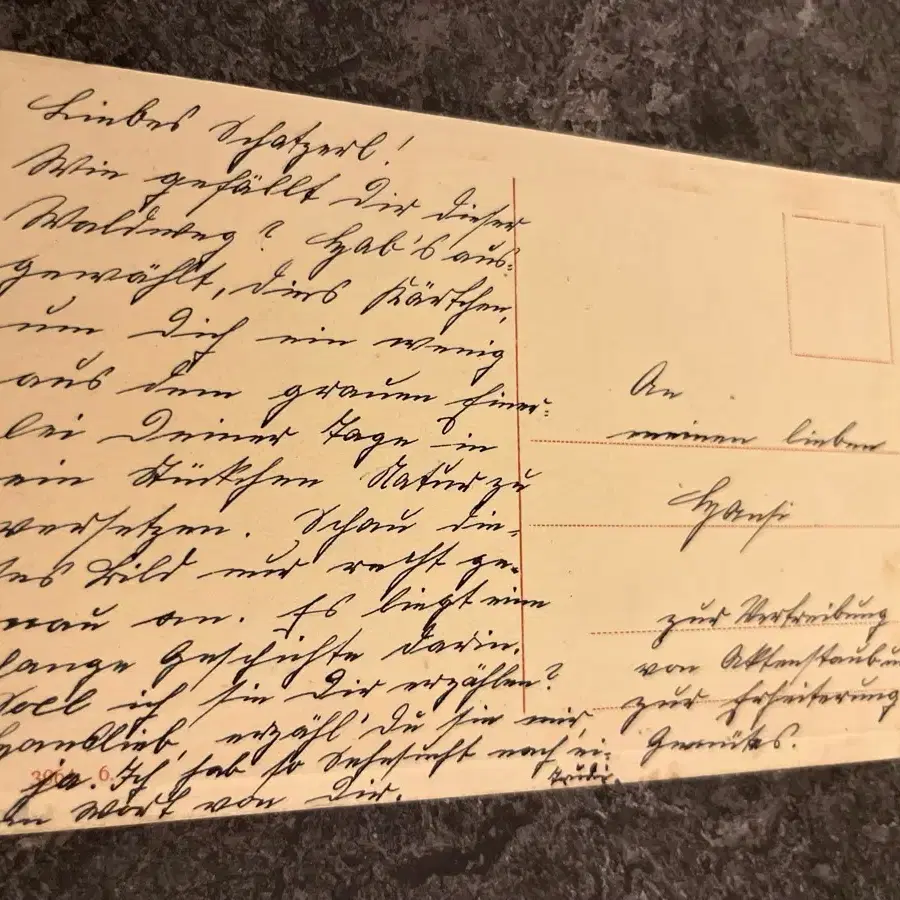 Liebes Schatzerl!
Wie gefällt Dir dieser
Waldweg? Hab's aus-
gewählt, dies Kärtchen,
um Dich ein wenig
aus dem grauen Einer-
lei Deiner Tage in
ein Stückchen Natur zu
versetzen. Schau die-
ses Bild nur recht ge-
nau an. Es liegt eine
lange Geschichte darin.
Soll ich sie Dir erzählen?
Hanslieb, erzähl' Du sie mir,
ja. Ich hab so Sehnsucht nach ei-
en Wort von Dir.
Trude.
6.
An
meinen lieben
Hansi
zur Vertreibung
von Aktenstaub u.
zur Erheiterung
Gemütes.